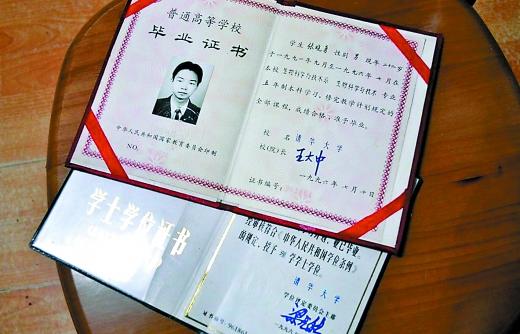 普通高等学校
毕业证书
中华人民共和国国家教育委员会印制
NO.
学生 张晓勇 性别 男 现年 二十一岁
于一九九一年九月至一九九六年七月在
本校 生物科学与技术系 生物科学与技术 专业
五年制本科学习,修完教学计划规定的
全部课程,成绩合格,准予毕业。
校名 清华大学
校(院)长 王大中
一九九六年七月十日
证书编号:
学士学位证书
经审核符合《中华人民共和国学位条例》
的规定,授予 理 学学士学位。
清华大学
学位评定委员会主席